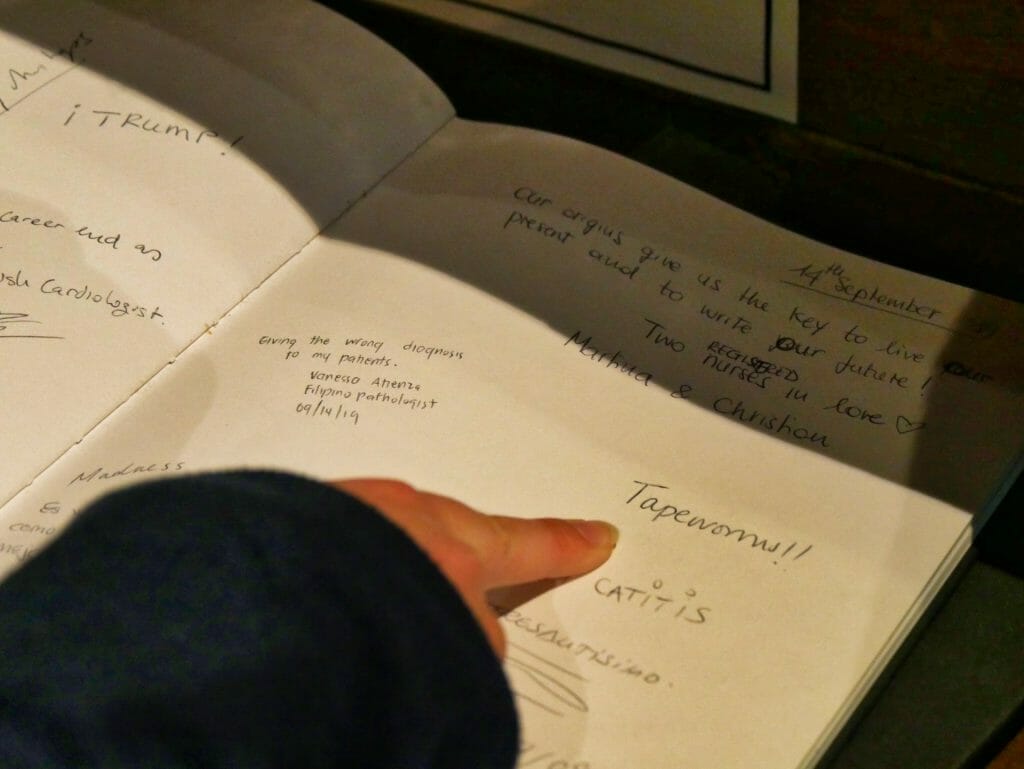 ¡TRUMP!
career end as
Cardiologist.
Our origins give us the key to live our
present and to write our future!
14th September
Two REGISTERED nurses in love ♡
& Christian
Giving the wrong diagnosis
to my patients.
Vanessa Atienza
Filipino pathologist
09/14/19
Madness
Es
como
Tapeworms!!
CATITIS